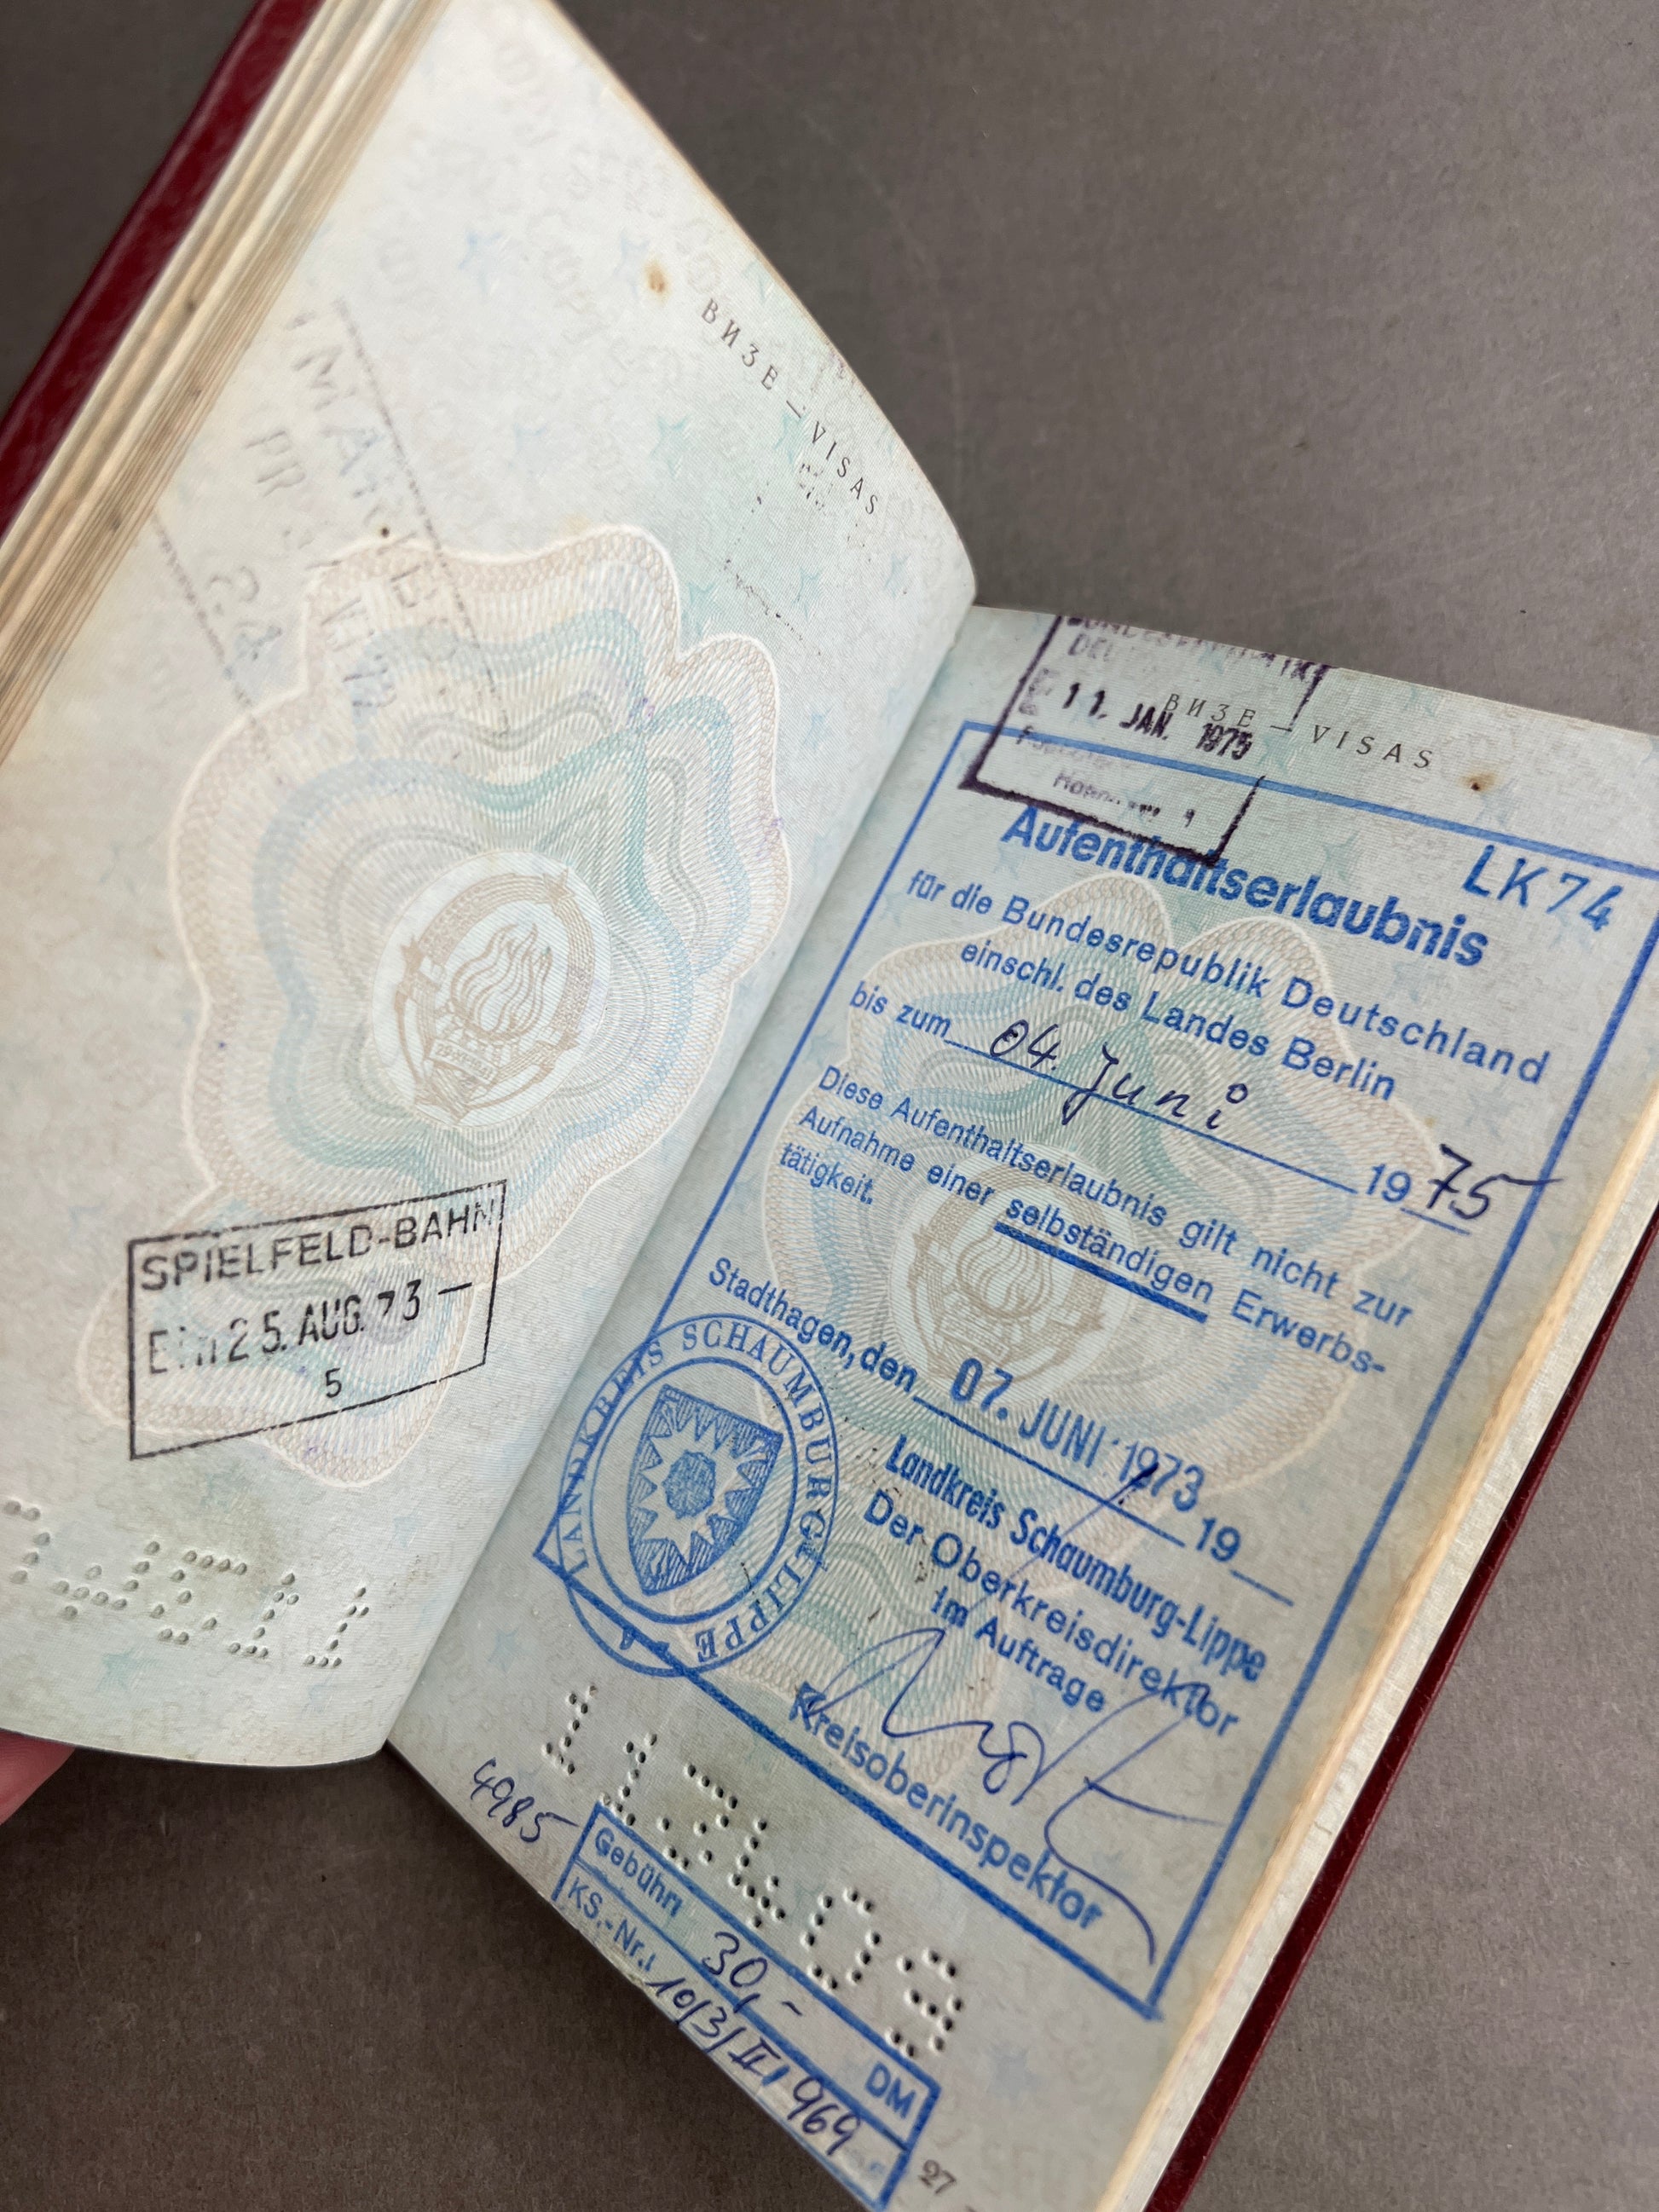 ВИЗЕ — VISAS
SPIELFELD-BAHN
Ein 25. AUG. 73 —
5
11. JAN. 1975
ВИЗЕ — VISAS
LK 74
Aufenthaltserlaubnis
für die Bundesrepublik Deutschland
einschl. des Landes Berlin
bis zum 04. Juni 1975
Diese Aufenthaltserlaubnis gilt nicht zur
Aufnahme einer selbständigen Erwerbs-
tätigkeit.
Stadthagen, den 07. JUNI 1973 19
LANDKREIS SCHAUMBURG-LIPPE
Landkreis Schaumburg-Lippe
Der Oberkreisdirektor
Im Auftrage
Kreisoberinspektor
4985
Gebühr: 30,- DM
KS.-Nr.: 10/3/II/969
27